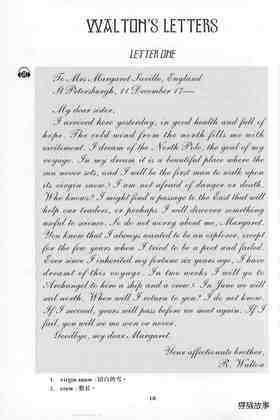 WALTON'S LETTERS
LETTER ONE
To Mrs Margaret Saville, England
St Petersburgh, 11 December 17—
My dear sister,
I arrived here yesterday, in good health and full of
hope. The cold wind from the north fills me with
excitement. I dream of the North Pole, the goal of my
voyage. In my dream it is a beautiful place where the
sun never sets, and I will be the first man to walk upon
its virgin snow.1 I am not afraid of danger or death.
Who knows? I might find a passage to the East that will
help our traders, or perhaps I will discover something
useful to science. So do not worry about me, Margaret.
You know that I always wanted to be an explorer, except
for the few years when I tried to be a poet and failed.
Ever since I inherited my fortune six years ago, I have
dreamt of this voyage. In two weeks I will go to
Archangel to hire a ship and a crew.2 In June we will
sail north. When will I return to you? I do not know.
If I succeed, years will pass before we meet again. If I
fail, you will see me soon or never.
Goodbye, my dear Margaret.
Your affectionate brother,
R. Walton
1. virgin snow :
2. crew :